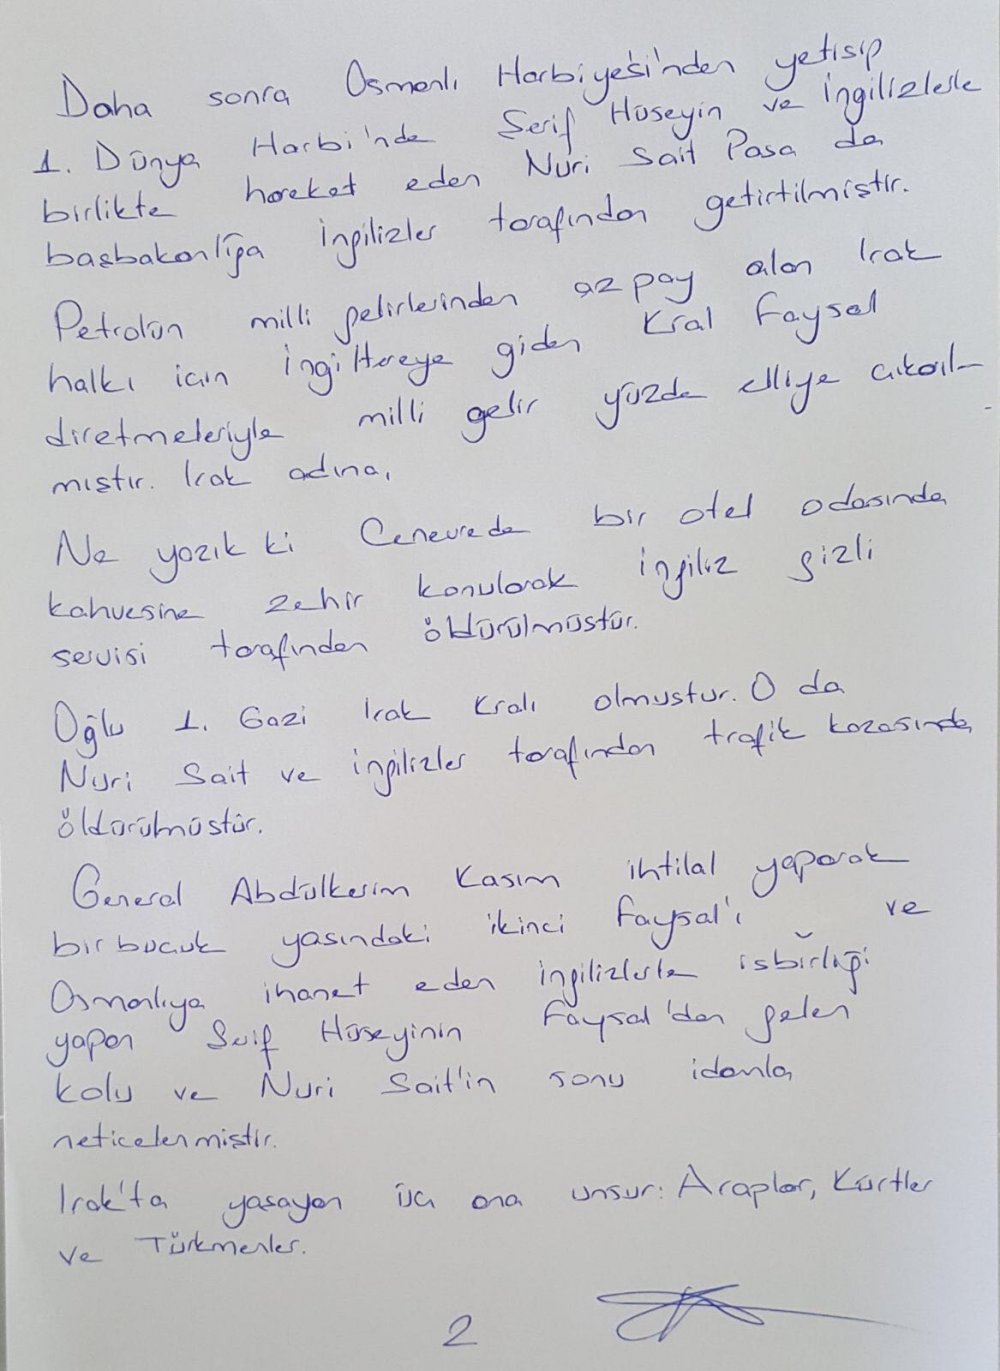 Daha sonra Osmanlı Harbiyesi'nden yetişip
1. Dünya Harbi'nde Şerif Hüseyin ve İngilizlerle
birlikte hareket eden Nuri Sait Paşa da
başbakanlığa İngilizler tarafından getirtilmiştir.
Petrolün milli gelirlerinden az pay alan Irak
halkı için İngiltereye giden Kral Faysal
diretmeleriyle milli gelir yüzde elliye çıkarıl-
mıştır. Irak adına,
Ne yazık ki Cenevrede bir otel odasında
kahvesine zehir konularak İngiliz gizli
servisi tarafından öldürülmüştür.
Oğlu 1. Gazi Irak Kralı olmuştur. O da
Nuri Sait ve İngilizler tarafından trafik kazasında
öldürülmüştür.
General Abdülkerim Kasım ihtilal yaparak
bir buçuk yaşındaki ikinci Faysal'ı ve
Osmanlıya ihanet eden İngilizlerle işbirliği
yapan Şerif Hüseyinin Faysal'dan gelen
kolu ve Nuri Sait'in sonu idamla
neticelenmiştir.
Irak'ta yaşayan üç ana unsur: Araplar, Kürtler
ve Türkmenler.
2